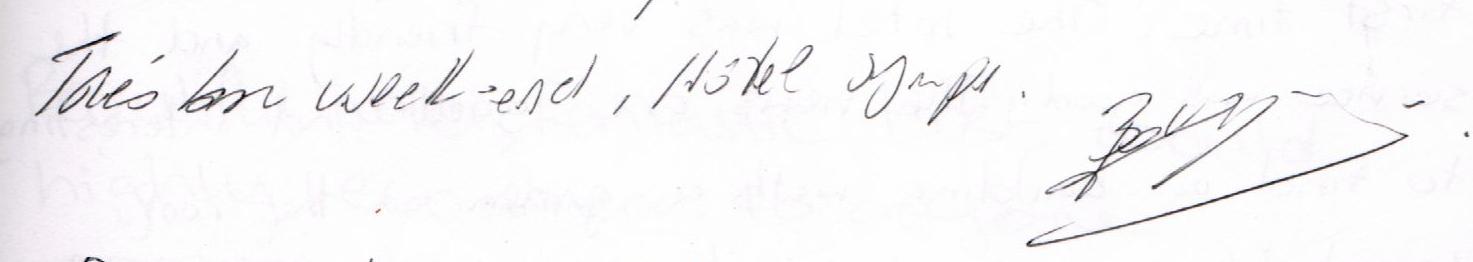 Très bon week-end, Hôtel sympa.